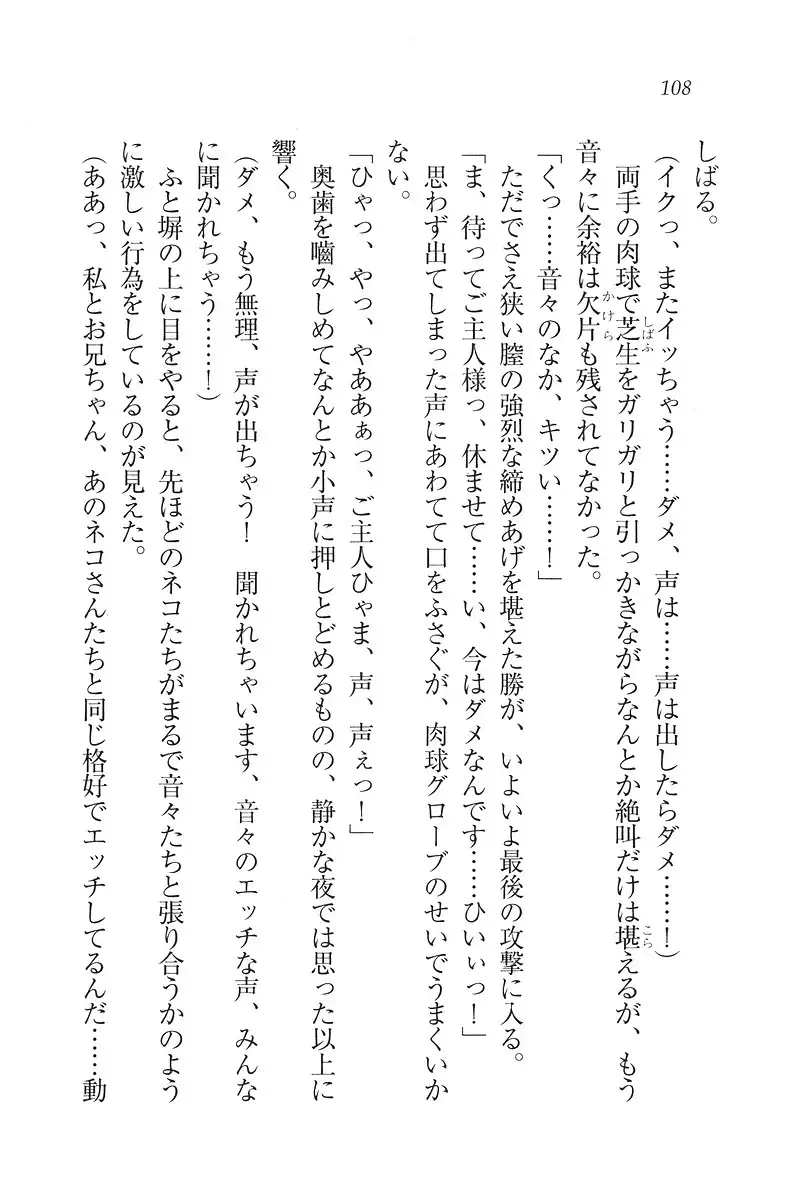 108
しばる。
（イクっ、またイッちゃう……ダメ、声は……声は出したらダメ……！）
両手の肉球で芝生をガリガリと引っかきながらなんとか絶叫だけは堪えるが、もう
音々に余裕は欠片も残されてなかった。
「くっ……音々のなか、キツい……！」
ただでさえ狭い膣の強烈な締めあげを堪えた勝が、いよいよ最後の攻撃に入る。
「ま、待ってご主人様っ、休ませて……い、今はダメなんです……ひいぃっ！」
思わず出てしまった声にあわてて口をふさぐが、肉球グローブのせいでうまくいか
ない。
「ひゃっ、やっ、やああぁっ、ご主人ひゃま、声、声ぇっ！」
奥歯を嚙みしめてなんとか小声に押しとどめるものの、静かな夜では思った以上に
響く。
（ダメ、もう無理、声が出ちゃう！　聞かれちゃいます、音々のエッチな声、みんな
に聞かれちゃう……！）
ふと塀の上に目をやると、先ほどのネコたちがまるで音々たちと張り合うかのよう
に激しい行為をしているのが見えた。
（ああっ、私とお兄ちゃん、あのネコさんたちと同じ格好でエッチしてるんだ……動